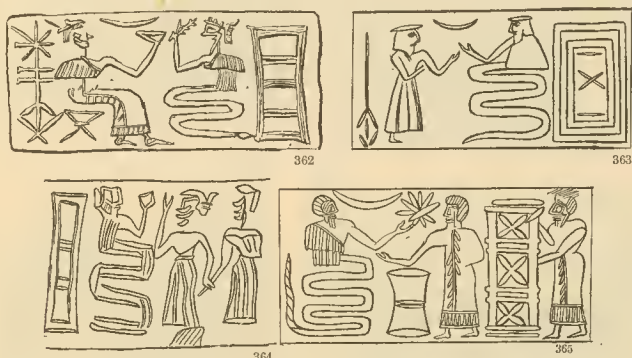 362
363
364
365